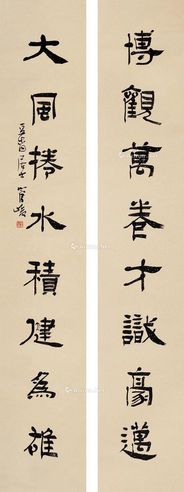 博觀萬卷才識豪邁
大風捲水積健為雄